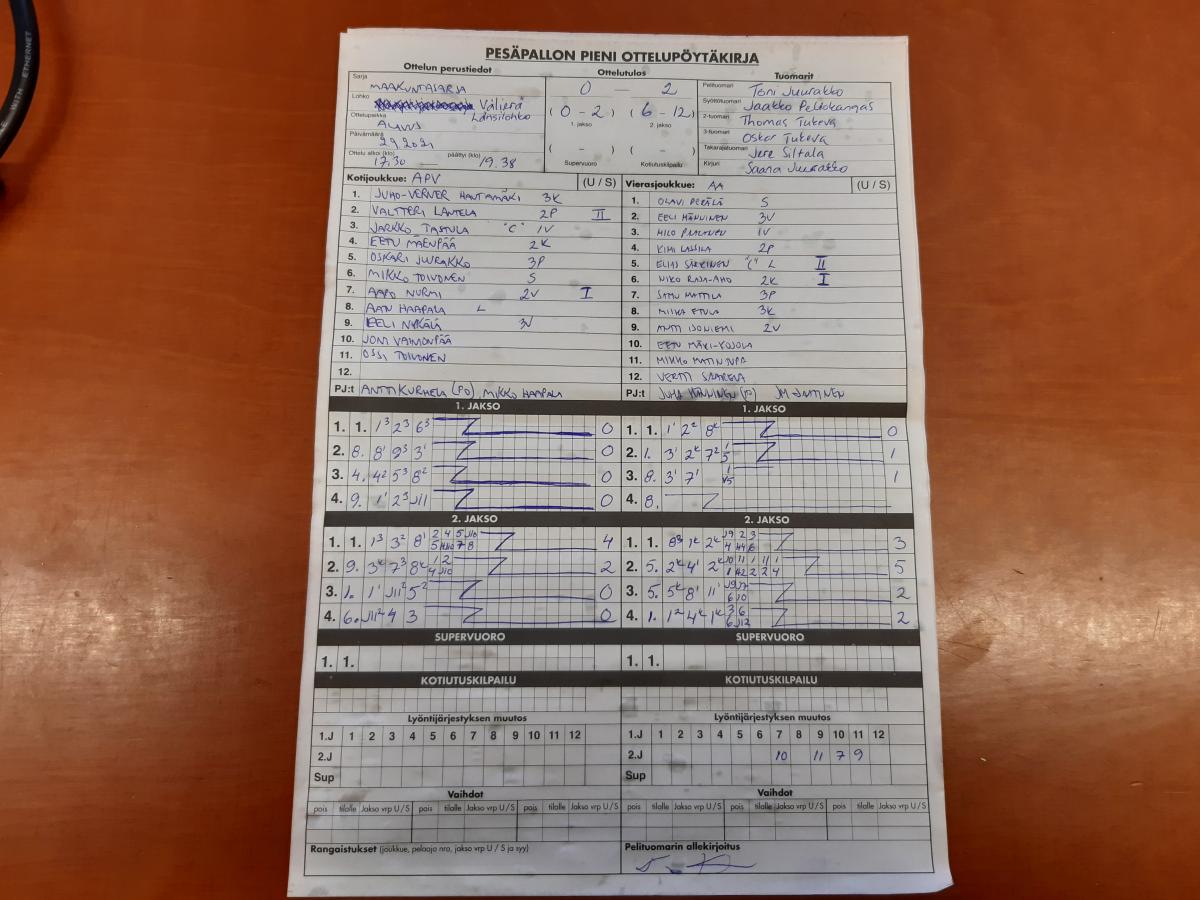 WITH ETHERNET
PESÄPALLON PIENI OTTELUPÖYTÄKIRJA
Ottelun perustiedot
Ottelutulos
Tuomarit
Sarja MAAKUNTASARJA
Lohko Välierä
Länsilohko
Ottelupaikka ALAVUS
Päivämäärä 2.9.2021
Ottelu alkoi (klo) 17.30 — päättyi (klo) 19.38
0 — 2
(0 - 2) (6 - 12)
1. jakso 2. jakso
( - ) ( - )
Supervuoro Kotiutuskilpailu
Pelituomari Toni Juurakko
Syöttötuomari Jaakko Peltokangas
2-tuomari Thomas Tukeva
3-tuomari Oskar Tukeva
Takarajatuomari Jere Siltala
Kirjuri Saana Juurakko
Kotijoukkue: APV (U / S)
1. JUHO-VERNER HANTAMÄKI 3K
2. VALTTERI LANTELA 2P II
3. JARKKO TASTULA "C" 1V
4. EETU MÄENPÄÄ 2K
5. OSKARI JUURAKKO 3P
6. MIKKO TOIVONEN S
7. AAPO NURMI 2V I
8. HAAPALA L
9. EELI 3V
10. JONI VAINIONPÄÄ
11. OSSI TOIVONEN
12.
PJ:t ANTTI KURHELA (PO) MIKKO HAAPALA
Vierasjoukkue: AA (U / S)
1. OLAVI PERÄLÄ S
2. EELI HÄNNINEN 3V
3. MILO 1V
4. KIMI LASSILA 2P
5. ELIAS "C" L II
6. NIKO RAJA-AHO 2K I
7. SAMU MATTILA 3P
8. MIIKA ETULA 3K
9. ANTTI ISONIEMI 2V
10. EETU MÄKI-KOJOLA
11. MIKKO MATINTUPA
12. VERTTI
PJ:t JUHA HÄNNINEN
1. JAKSO
1. 1. 1³ 2³ 6³ 0
2. 8. 8¹ 9³ 3¹ 0
3. 4. 4² 5³ 8² 0
4. 9. 1¹ 2³ J11 0
1. JAKSO
1. 1. 1¹ 2² 8ᴷ 0
2. 1. 3¹ 2ᴷ 7² 1 5 1
3. 8. 3¹ 7¹ 1 1
4. 8.
2. JAKSO
1. 1. 1³ 3² 8¹ 4
2. 9. 3ᴷ 7³ 8ᴷ 2
3. 1. 1¹ J11² 5² 0
4. 6. J11² 4 3 0
2. JAKSO
1. 1. 8³ 1ᴷ 2ᴷ 3
2. 5. 2ᴷ 4¹ 2ᴷ 5
3. 5. 5ᴷ 8¹ 11¹ 2
4. 1. 1² 4ᴷ 1ᴷ 2
SUPERVUORO
1. 1.
SUPERVUORO
1. 1.
KOTIUTUSKILPAILU
KOTIUTUSKILPAILU
Lyöntijärjestyksen muutos
1.J 1 2 3 4 5 6 7 8 9 10 11 12
2.J
Sup
Lyöntijärjestyksen muutos
1.J 1 2 3 4 5 6 7 8 9 10 11 12
2.J 10 11 7 9
Sup
Vaihdot
pois tilalle Jakso vrp U / S pois tilalle Jakso vrp U / S pois tilalle Jakso vrp U / S
Vaihdot
pois tilalle Jakso vrp U / S pois tilalle Jakso vrp U / S pois tilalle Jakso vrp U / S
Rangaistukset (joukkue, pelaaja nro, jakso vrp U / S ja syy)
Pelituomarin allekirjoitus